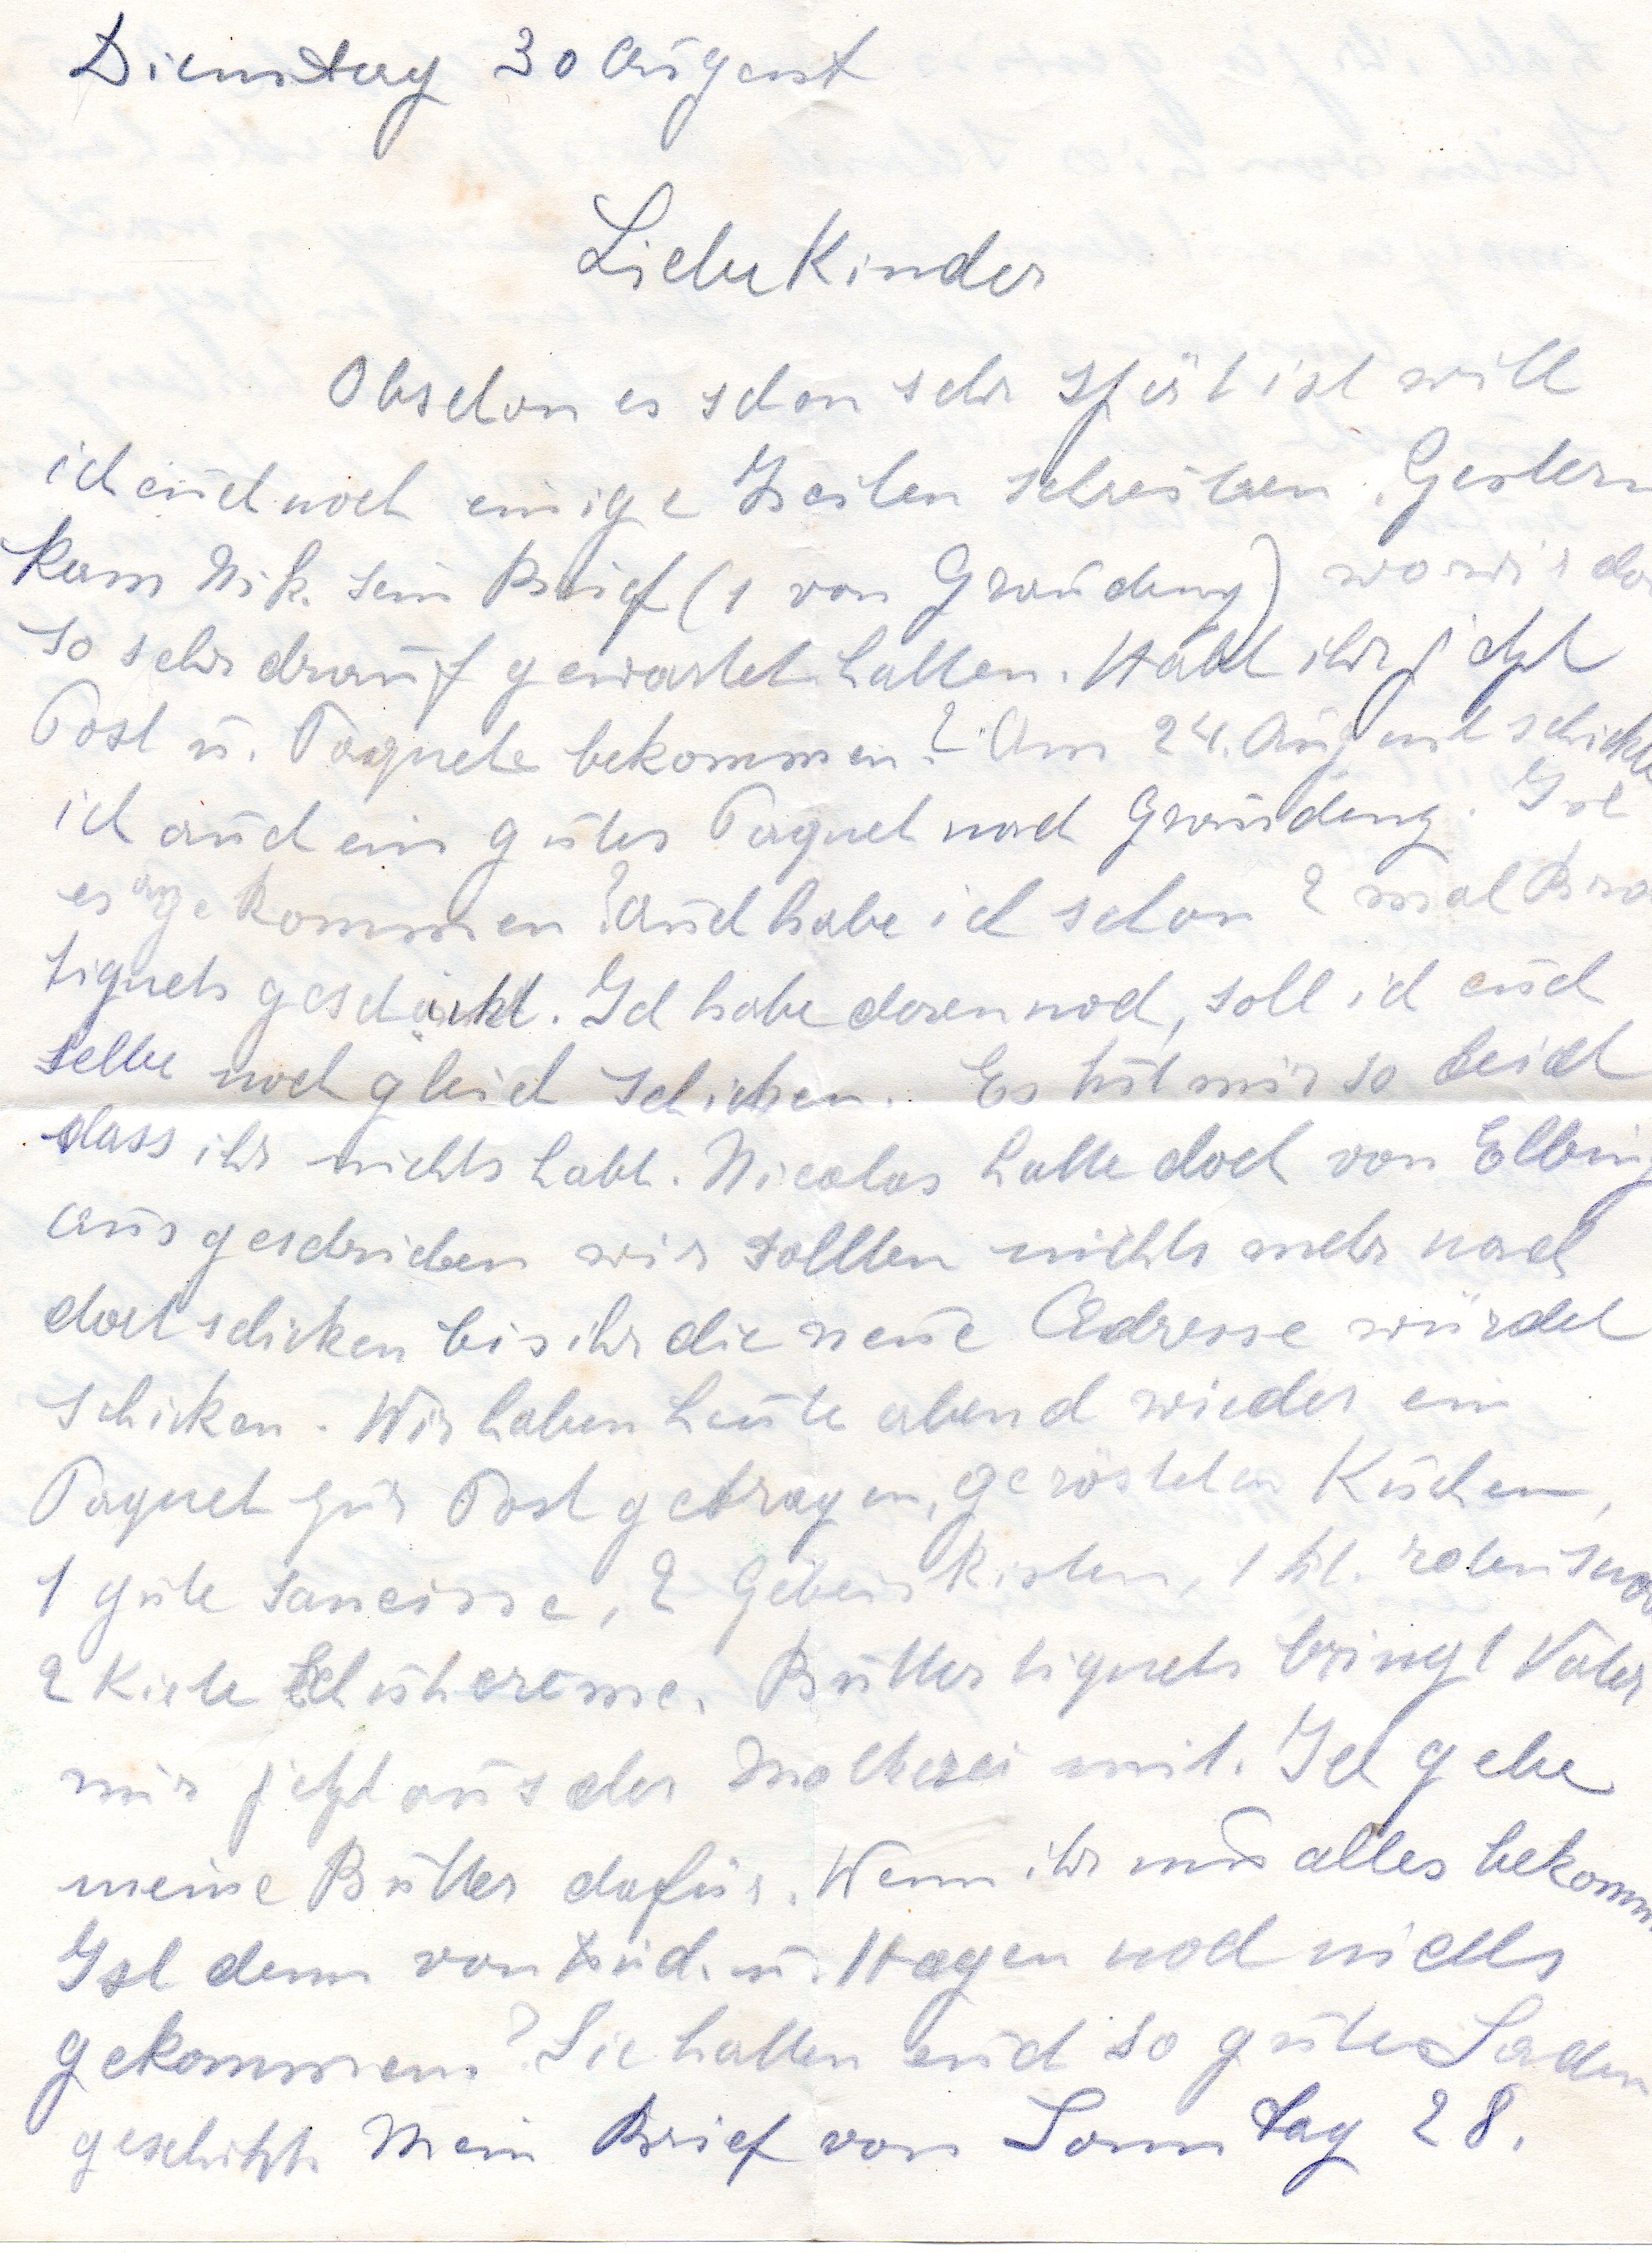 Dienstag 30 August
Liebe Kinder
Obschon es schon sehr spät ist will
ich euch noch einige Zeilen schreiben. Gestern
kam Nik. sein Brief (1 von Graudenz) wo wir do
so sehr drauf gewartet hatten. Habt ihr jetzt
Post u. Paquete bekommen? Am 24. August schickte
ich auch ein gutes Paquet nach Graudenz. Ist
es angekommen? Auch habe ich schon 2 mal Bro
tiquets geschickt. Ich habe deren noch, soll ich euch
selbe noch gleich schicken. Es tut mir so leid
dass ihr nichts habt. Nicolas hatte doch von Elbing
aus geschrieben wir sollten nichts mehr nach
dort schicken bis ihr die neue Adresse würdet
schicken. Wir haben heute abend wieder ein
Paquet zur Post getragen, gerösteten Kuchen,
1 gute saucisse, 2 kisten, 1 roten
2 Kiste Schuhcreme. Buttertiquets bringt Vater
mir jetzt aus der Molkerei mit. Ich gebe
meine Butter dafür. Wenn ihr nur alles bekomm
Ist denn von u. Hagen noch nichts
gekommen? Sie hatten euch so gute Sachen
geschickt. Mein Brief von Sonntag 28.